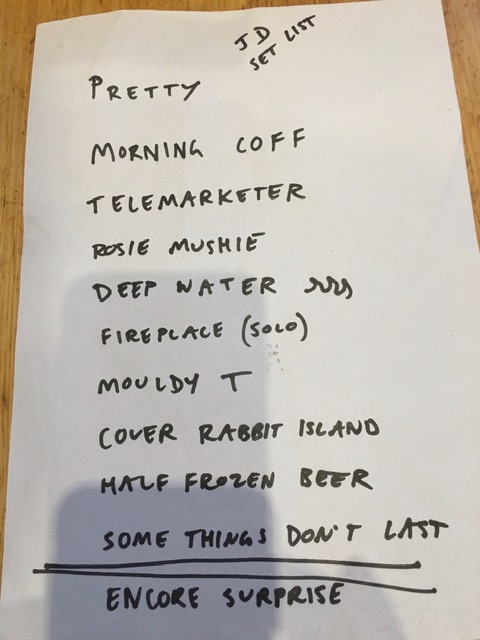 JD
SET LIST
PRETTY
MORNING COFF
TELEMARKETER
ROSIE MUSHIE
DEEP WATER
FIREPLACE (SOLO)
MOULDY T
COVER RABBIT ISLAND
HALF FROZEN BEER
SOME THINGS DON'T LAST
ENCORE SURPRISE